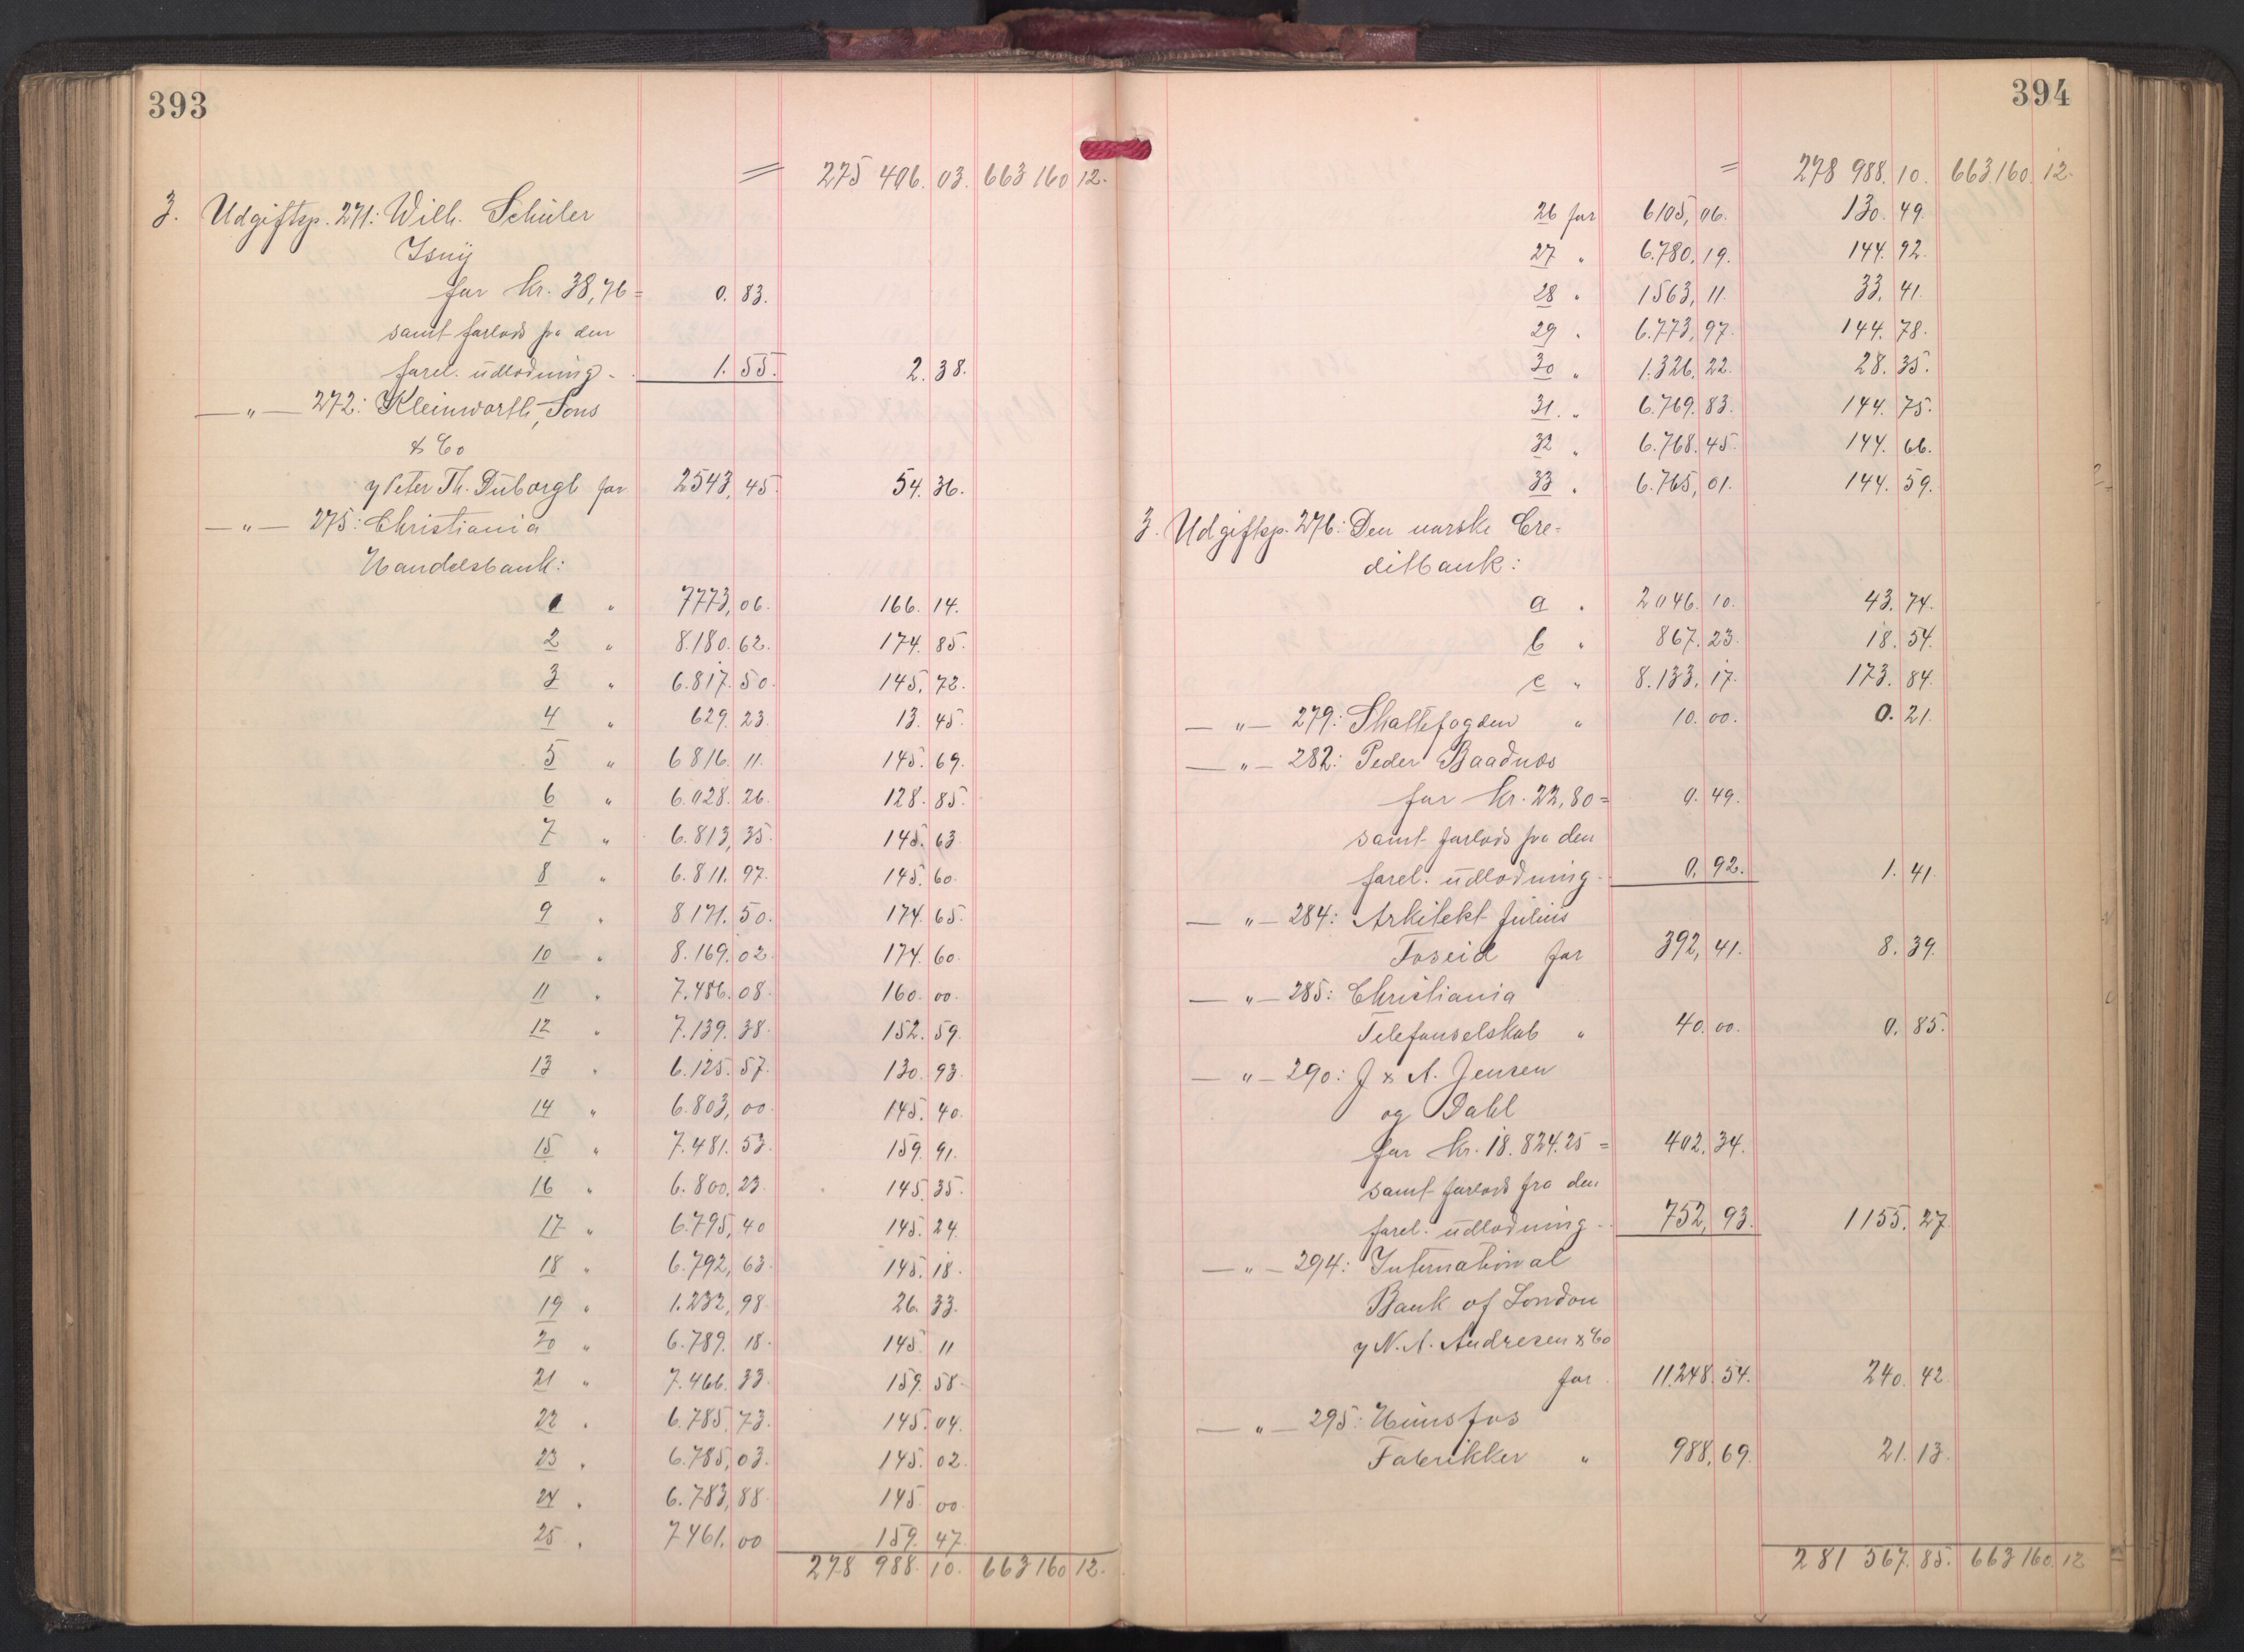 393
= 275 406. 03. 663 160 12.
3. Udgiftsp. 271: Wilh. Schüler
Isny
for Kr. 38,76 = 0. 83.
samt forlods fra den
forel. udlodning - 1. 55. 2. 38.
— " — 272: Kleinworth, Sons
& Co
y Peter Th. Duborgh for 2543, 45. 54. 36.
— " — 275: Christiania
Handelsbank:
1 " 7773, 06. 166. 14.
2 " 8.180. 62. 174. 85.
3 " 6.817. 50. 145. 72.
4 " 629. 23. 13. 45.
5 " 6816. 11. 145. 69.
6 " 6.028. 26. 128. 85.
7 " 6.813, 35. 145. 63
8 " 6.811. 97. 145. 60.
9 " 8171. 50. 174. 65.
10 " 8.169. 02. 174. 60.
11 " 7.486. 08. 160. 00.
12 " 7.139. 38. 152. 59.
13 " 6.125. 57. 130. 93.
14 " 6.803, 00. 145. 40.
15 " 7.481. 53. 159. 91.
16 " 6.800. 23. 145. 35.
17 " 6.795, 40 145. 24.
18 " 6.792, 63. 145. 18.
19 " 1.232, 98. 26. 33.
20 " 6.789. 18. 145. 11
21 " 7.466. 33. 159. 58.
22 " 6.785, 73. 145. 04.
23 " 6.785, 03. 145. 02.
24 " 6.783, 88. 145 00.
25 " 7461. 00 159. 47.
278 988. 10. 663 160 12.
394
= 278 988. 10. 663.160. 12.
26 for 6105, 06. 130. 49.
27 " 6.780, 19. 144. 92.
28 " 1563, 11. 33. 41.
29 " 6.773, 97. 144. 78.
30 " 1.326. 22. 28. 35.
31 " 6.769. 83. 144. 75.
32 " 6.768. 45. 144. 66.
33 " 6.765, 01. 144. 59.
3. Udgiftsp. 276: Den norske Cre-
ditbank:
a " 2046. 10. 43. 74.
b " 867. 23. 18. 54.
c " 8.133, 17. 173. 84.
— " — 279: Skattefogden " 10. 00. 0. 21.
— " — 282: Peder Baadnæs
for Kr. 22,80 = 0. 49.
samt forlods fra den
forel. udlodning - 0, 92. 1. 41.
— " — 284: Arkitekt Julius
Foseid for 392, 41. 8. 39.
— " — 285: Christiania
Telefonselskab " 40. 00. 0. 85.
— " — 290: J & A. Jensen
og Dahl
for Kr. 18.824.25 = 402. 34.
samt forlods fra den
forel. udlodning - 752, 93. 1155. 27
— " — 294: International
Bank of London
y N. A. Andresen & Co
for 11.248. 54. 240. 42.
— " — 295: Hunsfos
Fabrikker " 988, 69. 21. 13.
281 367. 85. 663 160. 12